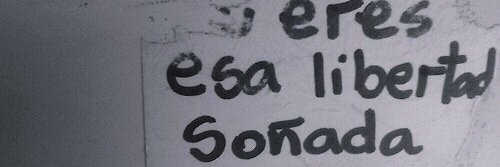 eres
esa libertad
Soñada